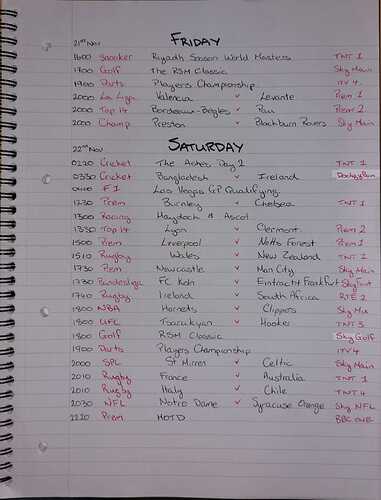 21st Nov FRIDAY
1600 Snooker Riyadh Season World Masters TNT 1
1700 Golf The RSM Classic Sky Main
1900 Darts Players Championship ITV 4
2000 La Liga Valencia v Levante Prem 1
2000 Top 14 Bordeaux-Begles v Pau Prem 2
2000 Champ Preston v Blackburn Rovers Sky Main
22nd Nov SATURDAY
0220 Cricket The Ashes Day 2 TNT 1
0330 Cricket Bangladesh v Ireland DodgyBox
0400 F1 Las Vegas GP Qualifying
1230 Prem Burnley v Chelsea TNT 1
1300 Racing Haydock & Ascot
1330 Top 14 Lyon v Clermont Prem 2
1500 Prem Liverpool v Notts Forest Prem 1
1510 Rugby Wales v New Zealand TNT 1
1730 Prem Newcastle v Man City Sky Main
1730 Bundesliga FC Koln v Eintracht Frankfurt Sky Foot
1740 Rugby Ireland v South Africa RTE 2
1800 NBA Hornets v Clippers Sky Mix
1800 UFC Tsarukyan v Hooker TNT 3
1800 Golf RSM Classic Sky Golf
1900 Darts Players Championship ITV 4
2000 SPL St Mirren v Celtic Sky Main
2010 Rugby France v Australia TNT 1
2010 Rugby Italy v Chile TNT 4
2030 NFL Notre Dame v Syracuse Orange Sky NFL
2220 Prem MOTD BBC one